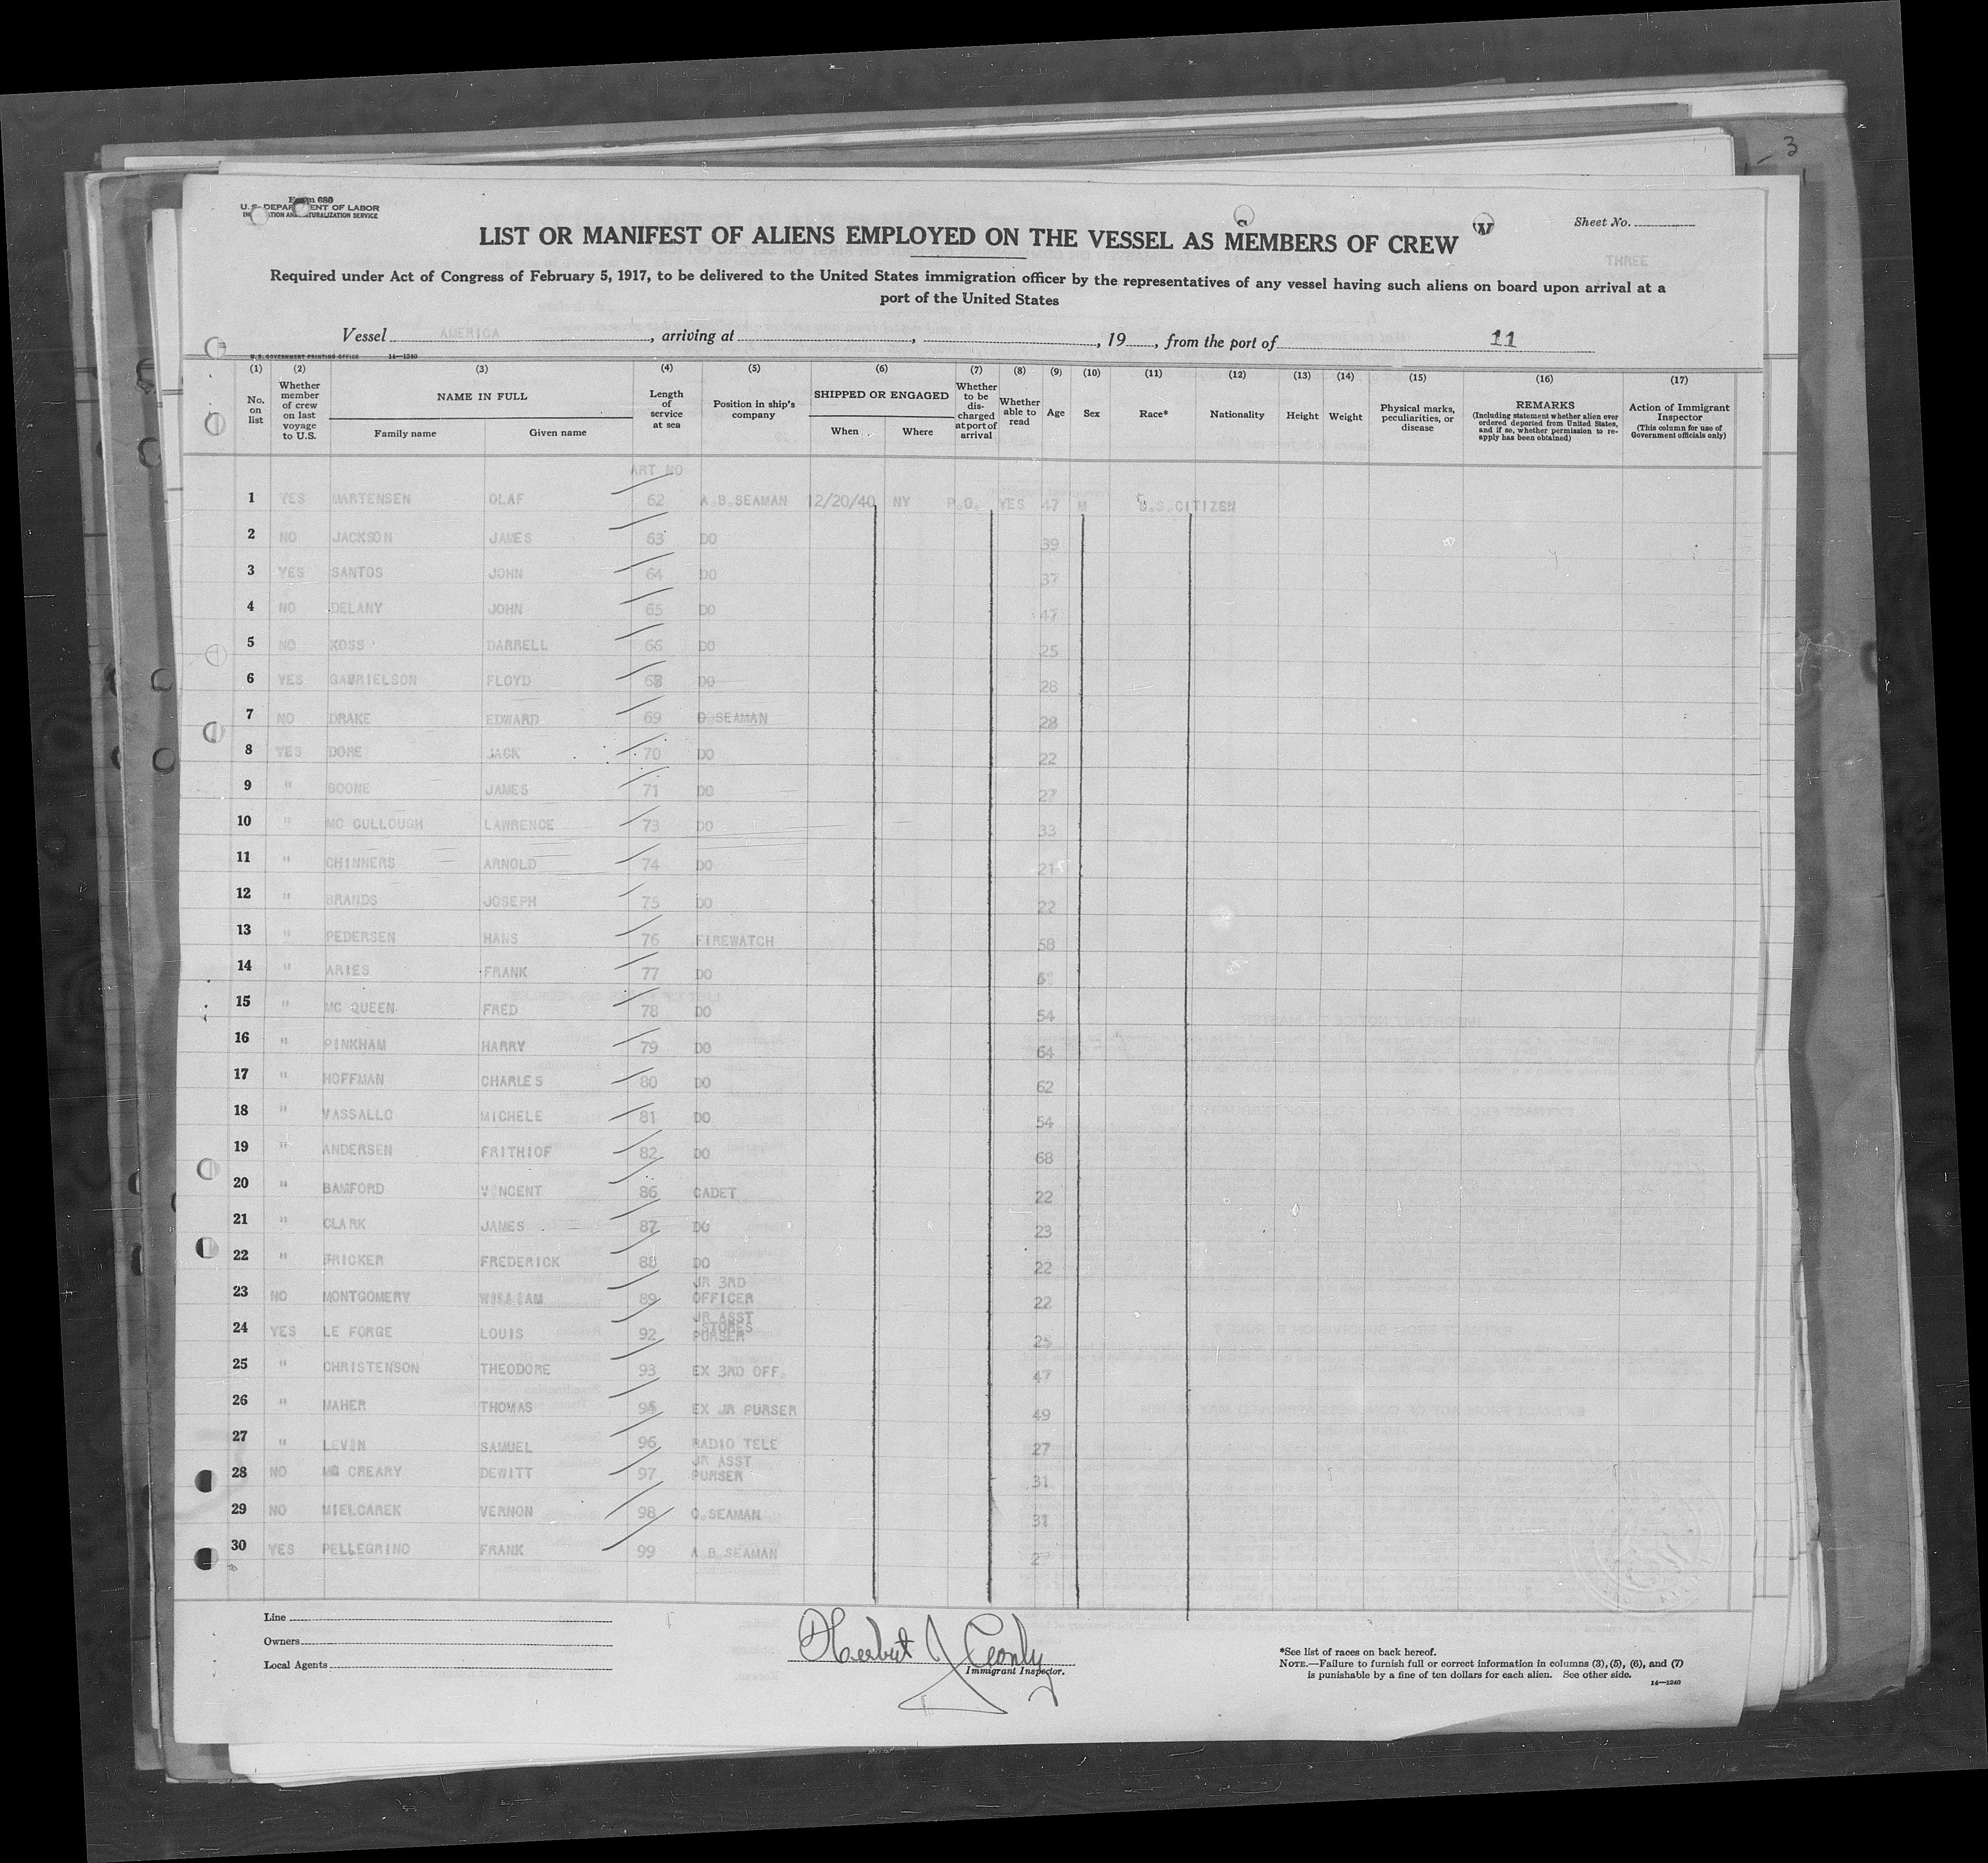 - 3
Form 680
U. S. DEPARTMENT OF LABOR
IMMIGRATION AND NATURALIZATION SERVICE
Sheet No.
LIST OR MANIFEST OF ALIENS EMPLOYED ON THE VESSEL AS MEMBERS OF CREW
THREE
Required under Act of Congress of February 5, 1917, to be delivered to the United States immigration officer by the representatives of any vessel having such aliens on board upon arrival at a
port of the United States
Vessel AMERICA, arriving at , , 19 , from the port of 11
U. S. GOVERNMENT PRINTING OFFICE 14—1240
(1) (2) (3) (4) (5) (6) (7) (8) (9) (10) (11) (12) (13) (14) (15) (16) (17)
No. on list
Whether member of crew on last voyage to U.S.
NAME IN FULL
Family name
Given name
Length of service at sea
Position in ship's company
SHIPPED OR ENGAGED
When
Where
Whether to be discharged at port of arrival
Whether able to read
Age
Sex
Race*
Nationality
Height
Weight
Physical marks, peculiarities, or disease
REMARKS
(Including statement whether alien ever ordered deported from United States, and if so, whether permission to reapply has been obtained)
Action of Immigrant Inspector
(This column for use of Government officials only)
ART NO
1 YES MARTENSEN OLAF 62 A.B.SEAMAN 12/20/40 NY P.O. YES 47 M U.S.CITIZEN
2 NO JACKSON JAMES 63 DO 39
3 YES SANTOS JOHN 64 DO 37
4 NO DELANY JOHN 65 DO 47
5 NO KOSS DARRELL 66 DO 25
6 YES GABRIELSON FLOYD 68 DO 28
7 NO DRAKE EDWARD 69 O SEAMAN 28
8 YES DORE JACK 70 DO 22
9 " BOONE JAMES 71 DO 27
10 " MC CULLOUGH LAWRENCE 73 DO 33
11 " CHINNERS ARNOLD 74 DO 21
12 " BRANDS JOSEPH 75 DO 22
13 " PEDERSEN HANS 76 FIREWATCH 58
14 " ARIES FRANK 77 DO
15 " MC QUEEN FRED 78 DO 54
16 " PINKHAM HARRY 79 DO 64
17 " HOFFMAN CHARLES 80 DO 62
18 " VASSALLO MICHELE 81 DO 54
19 " ANDERSEN FRITHIOF 82 DO 68
20 " BAMFORD VINCENT 86 CADET 22
21 " CLARK JAMES 87 DO 23
22 " FRICKER FREDERICK 88 DO 22
23 NO MONTGOMERY WILLIAM 89 JR 3RD OFFICER 22
24 YES LE FORGE LOUIS 92 JR ASST STORES PURSER 25
25 " CHRISTENSON THEODORE 93 EX 3RD OFF. 47
26 " MAHER THOMAS 95 EX JR PURSER 49
27 " LEVIN SAMUEL 96 RADIO TELE 27
28 NO MC CREARY DEWITT 97 JR ASST PURSER 31
29 NO MIELCAREK VERNON 98 O.SEAMAN 31
30 YES PELLEGRINO FRANK 99 A B SEAMAN
Line
Owners
Local Agents
Immigrant Inspector.
*See list of races on back hereof.
NOTE.—Failure to furnish full or correct information in columns (3), (5), (6), and (7)
is punishable by a fine of ten dollars for each alien. See other side.
14—1240